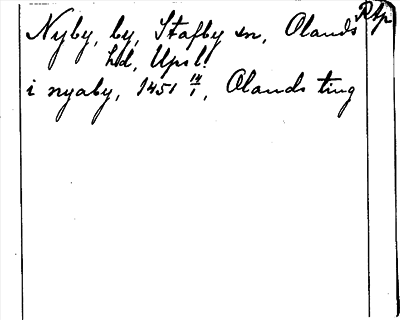 Rtp
Nyby, by, Stafby sn, Olands
hd, Upsl.
i nyaby, 1451 14/1, Olands ting